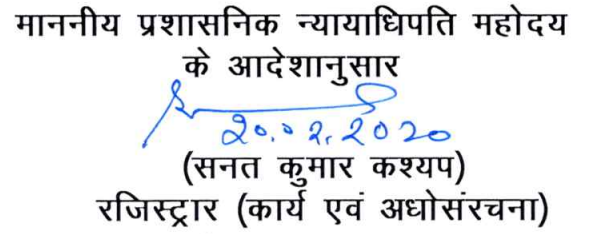 माननीय प्रशासनिक न्यायाधिपति महोदय
के आदेशानुसार
20.02.2020
(सनत कुमार कश्यप)
रजिस्ट्रार (कार्य एवं अधोसंरचना)